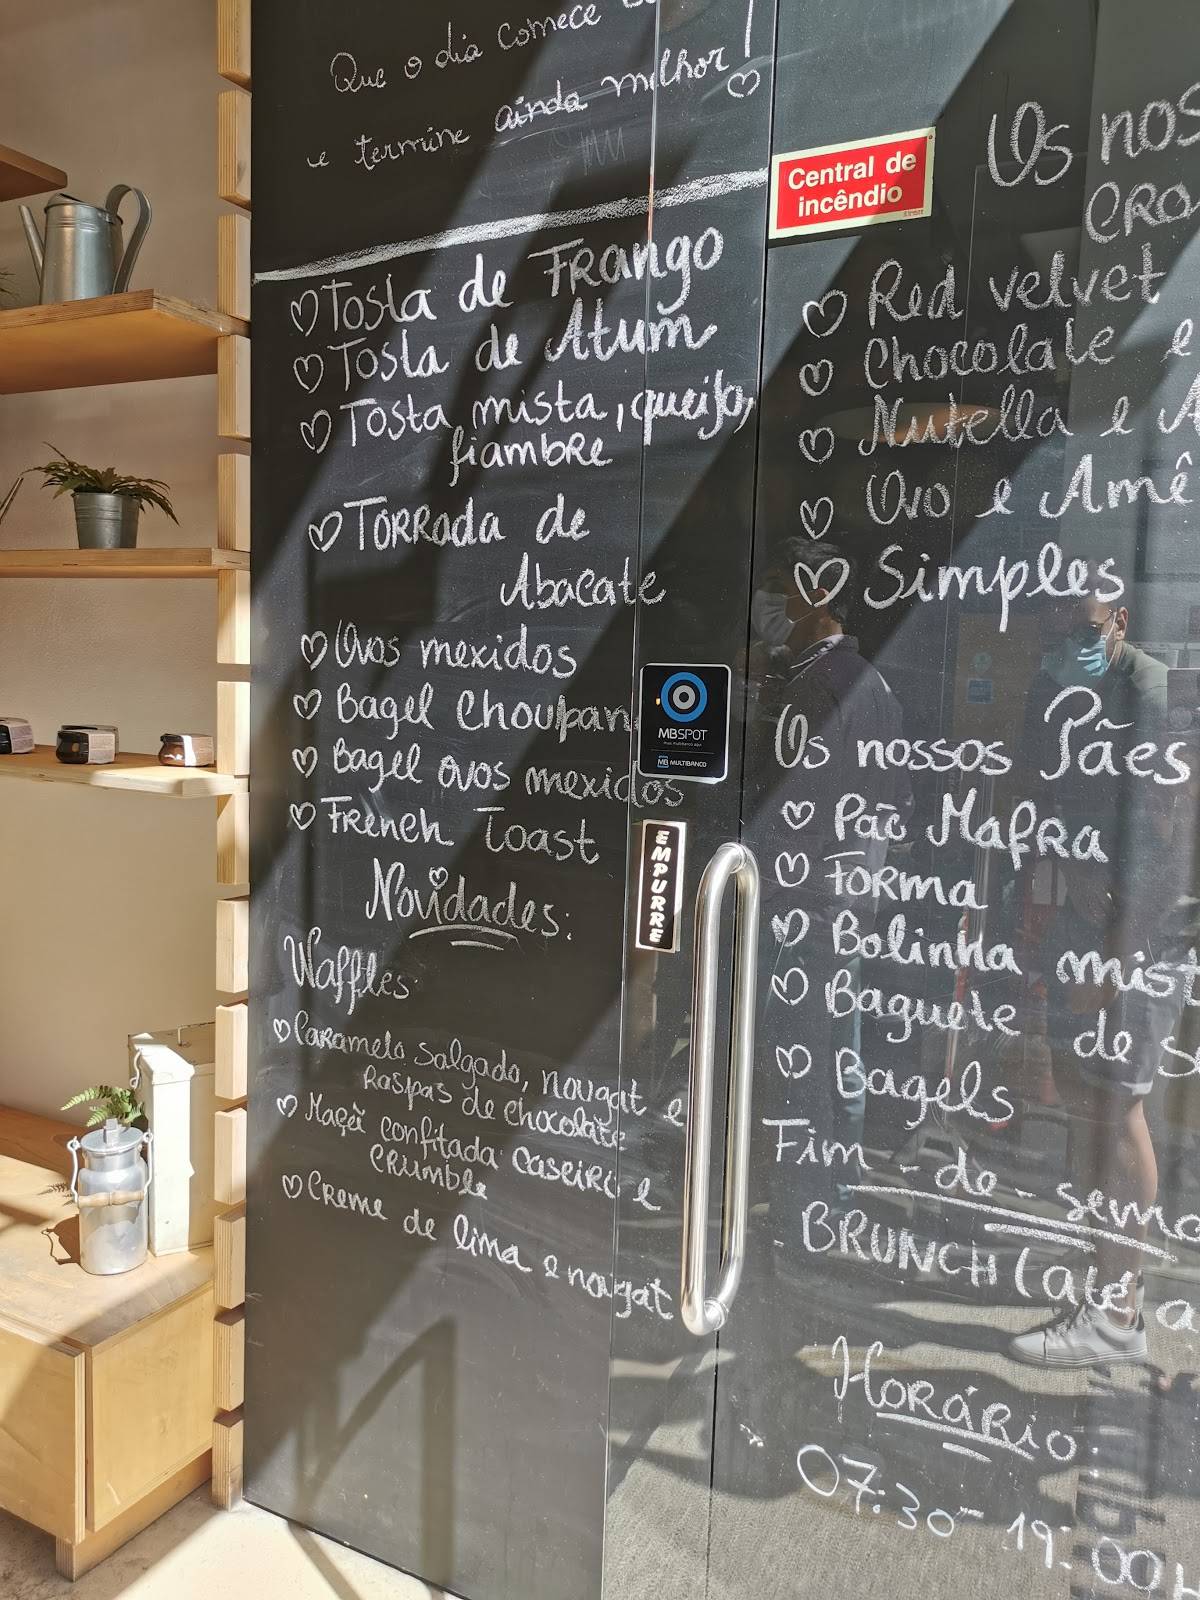 Que o dia comece
e termine ainda melhor!
Tosta de Frango
Tosta de Atum
Tosta mista, queijo,
fiambre
TORRada de
Abacate
Ovos mexidos
Bagel Choupan
Bagel ovos mexidos
French Toast
Novidades:
Waffles
Caramelo salgado, nougat e
Raspas de chocolate
Maçã confitada caseira e
CRumble
Creme de lima e nougat
Central de
incêndio
MBSPOT
MB MULTIBANCO
EMPURRE
Os nos
CRO
Red velvet
Chocolate e
Nutella e A
Ovo e Amê
Simples
Os nossos Pães
Pão Mafra
Forma
Bolinha mist
Baguete de se
Bagels
Fim-de-sema
BRUNCH (até a
Horário
07:30 - 19:00H